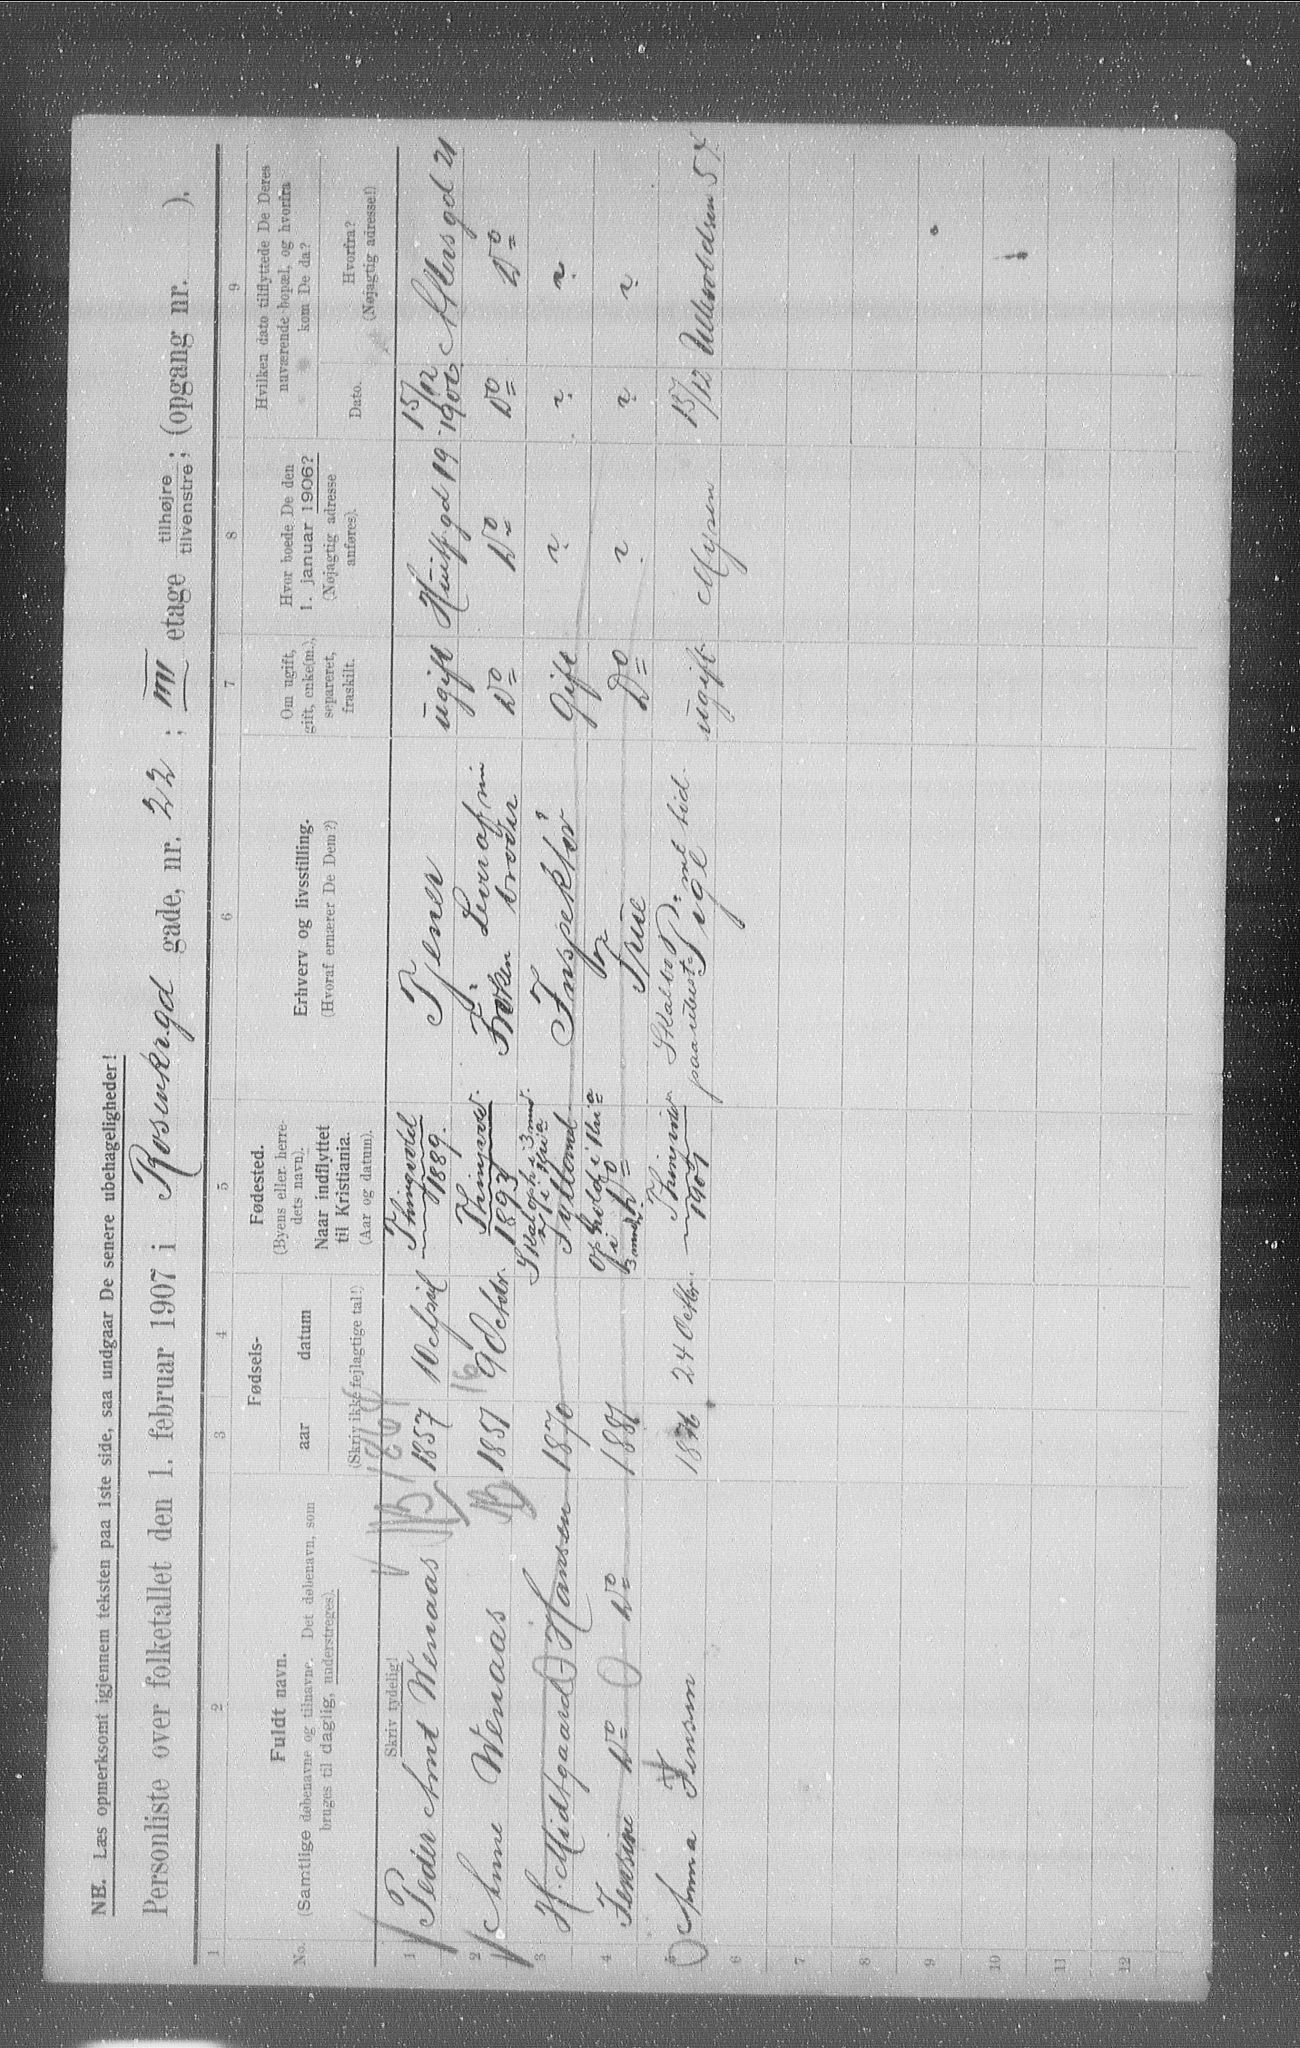 NB. Læs opmerksomt igjennem teksten paa 1ste side, saa undgaar De senere ubehageligheder!
Personliste over folketallet den 1. februar 1907 i Rosenkr.gd gade, nr. 22; IIII etage tilhøjre; tilvenstre; (opgang nr. ).
1 2 3 4 5 6 7 8 9
No.
Fuldt navn.
(Samtlige døbenavne og tilnavne. Det døbenavn, som
bruges til daglig, understreges).
Skriv tydelig!
Fødsels-
aar datum
(Skriv ikke fejlagtige tal!)
Fødested.
(Byens eller herre-
dets navn).
Naar indflyttet
til Kristiania.
(Aar og datum).
Erhverv og livsstilling.
(Hvoraf ernærer De Dem?)
Om ugift,
gift, enke(m.),
separeret,
fraskilt.
Hvor boede De den
1. januar 1906?
(Nøjagtig adresse
anføres).
Hvilken dato tilflyttede De Deres
nuværende bopæl, og hvorfra
kom De da?
Dato.
Hvorfra?
(Nøjagtig adresse!)
1 Peder Arnt Wenaas NB 1864 1857 10 April Thingvold 1889. Tjener ugift Huitf.gd 19 15/12 1906 Akersgd 21
2 Anne Wenaas NB 1851 16 9 Octbr. Thingvold. 1893 Frøken Lever af min broder Do Do Do Do
3 H. Midtgaard Hansen 1870 Jylland Inspektør Gift
4 Jensine Do Do 1881 ophold i Kria i 3 mndr Do Frue Do
5 Anna Jensen 24 Octbr. 1901 Pige ugift Mysen 15/12
6
7
8
9
10
11
12